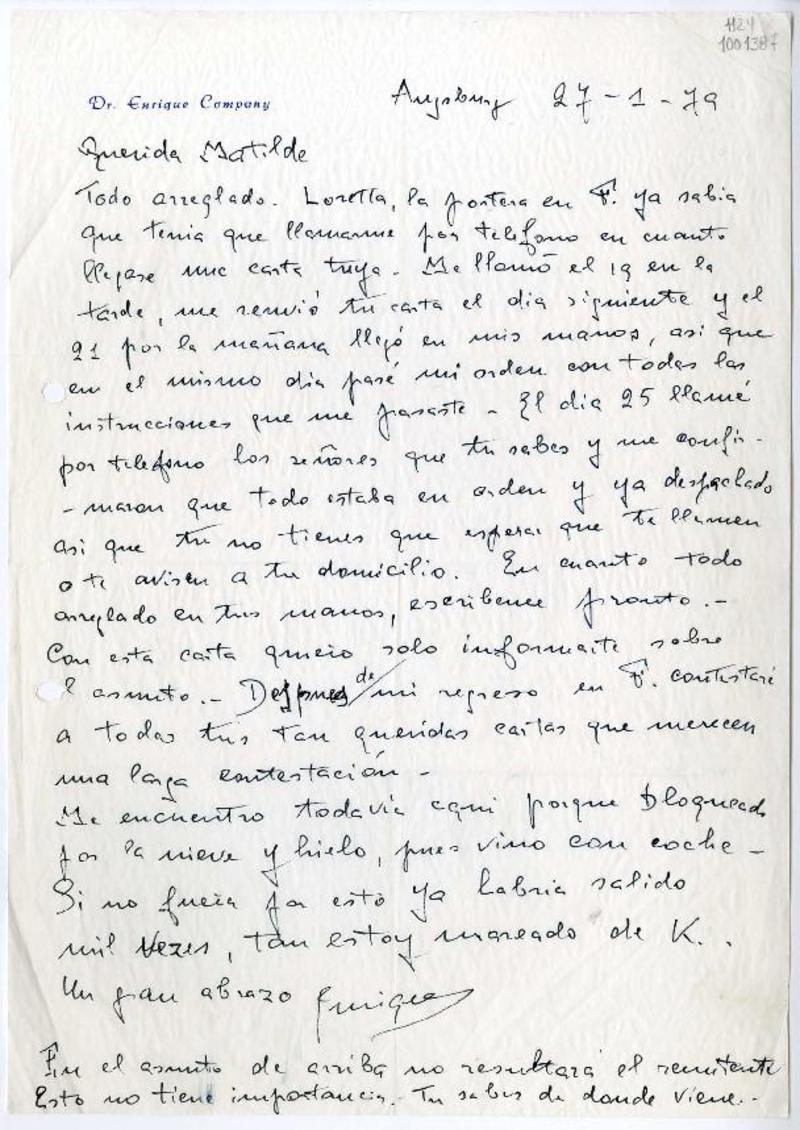 1124
1001387
Dr. Enrique Company
Augsburg 27-1-79
Querida Matilde
Todo arreglado. Loretta, la portera en F. ya sabia
que tenia que llamarme por telefono en cuanto
llegase una carta tuya. Me llamó el 19 en la
tarde, me renvió tu carta el dia siguiente y el
21 por la mañana llegó en mis manos, asi que
en el mismo dia pasé mi orden con todas las
instrucciones que me pasaste - El dia 25 llamé
por telefono los señores que tu sabes y me confir-
-maron que todo estaba en orden y ya despachado
asi que tu no tienes que esperar que te llamen
o te avisen a tu domicilio. En cuanto todo
arreglado en tus manos, escribeme pronto.-
Con esta carta quiero solo informarte sobre
l asunto.- Despues de mi regreso en F. contestaré
a todas tus tan queridas cartas que merecen
una larga contestación -
Me encuentro todavia aqui porque bloqueado
por la nieve y hielo, pues vino con coche -
Si no fuera por esto ya habria salido
mil vezes, tan estoy mareado de K. .
Un gran abrazo Enrique
En el asunto de arriba no resultará el remitente
Esto no tiene importancia. Tu sabes de donde viene.-